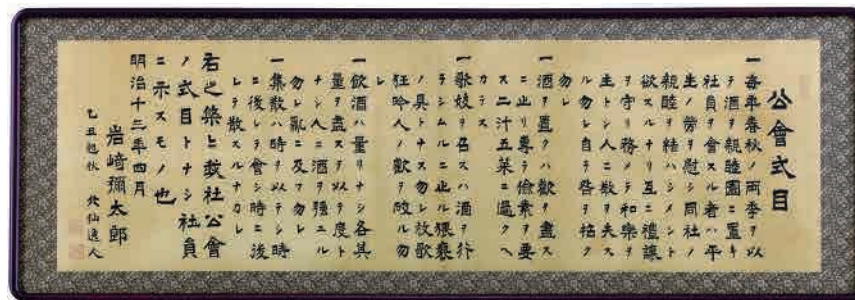 公會式目
一每年春秋ノ兩季ヲ以
テ酒ヲ親睦園ニ置キ
社員ヲ會スル者ハ平
生ノ勞ヲ慰シ同社ノ
親睦ヲ結ハシメント
欲スルナリ互ニ禮讓
ヲ守リ務メテ和樂ヲ
主トシ人ニ敬ヲ失ス
ル勿レ自ラ咎ヲ招ク
勿レ
一酒ヲ置クハ歡ヲ盡ス
ニ止リ專ラ儉素ヲ要
ス二汁五菜ニ過クヘ
カラス
一歌妓ヲ召スハ酒ヲ行
ラシムルニ止ル猥褻
ノ具トナス勿レ放歌
狂吟人ノ歡ヲ敗ル勿
レ
一飲酒ハ量リナシ各其
量ヲ盡スヲ以テ度ト
ナシ人ニ酒ヲ强ユル
勿レ亂ニ及フ勿レ
一集散ハ時ヲ以テシ時
ニ後レテ會シ時ニ後
レテ散スルナカレ
右之條ヒ我社公會
ノ式目トナシ社員
ニ示スモノ也
明治十三年四月
岩﨑彌太郎
乙丑初秋 逸人